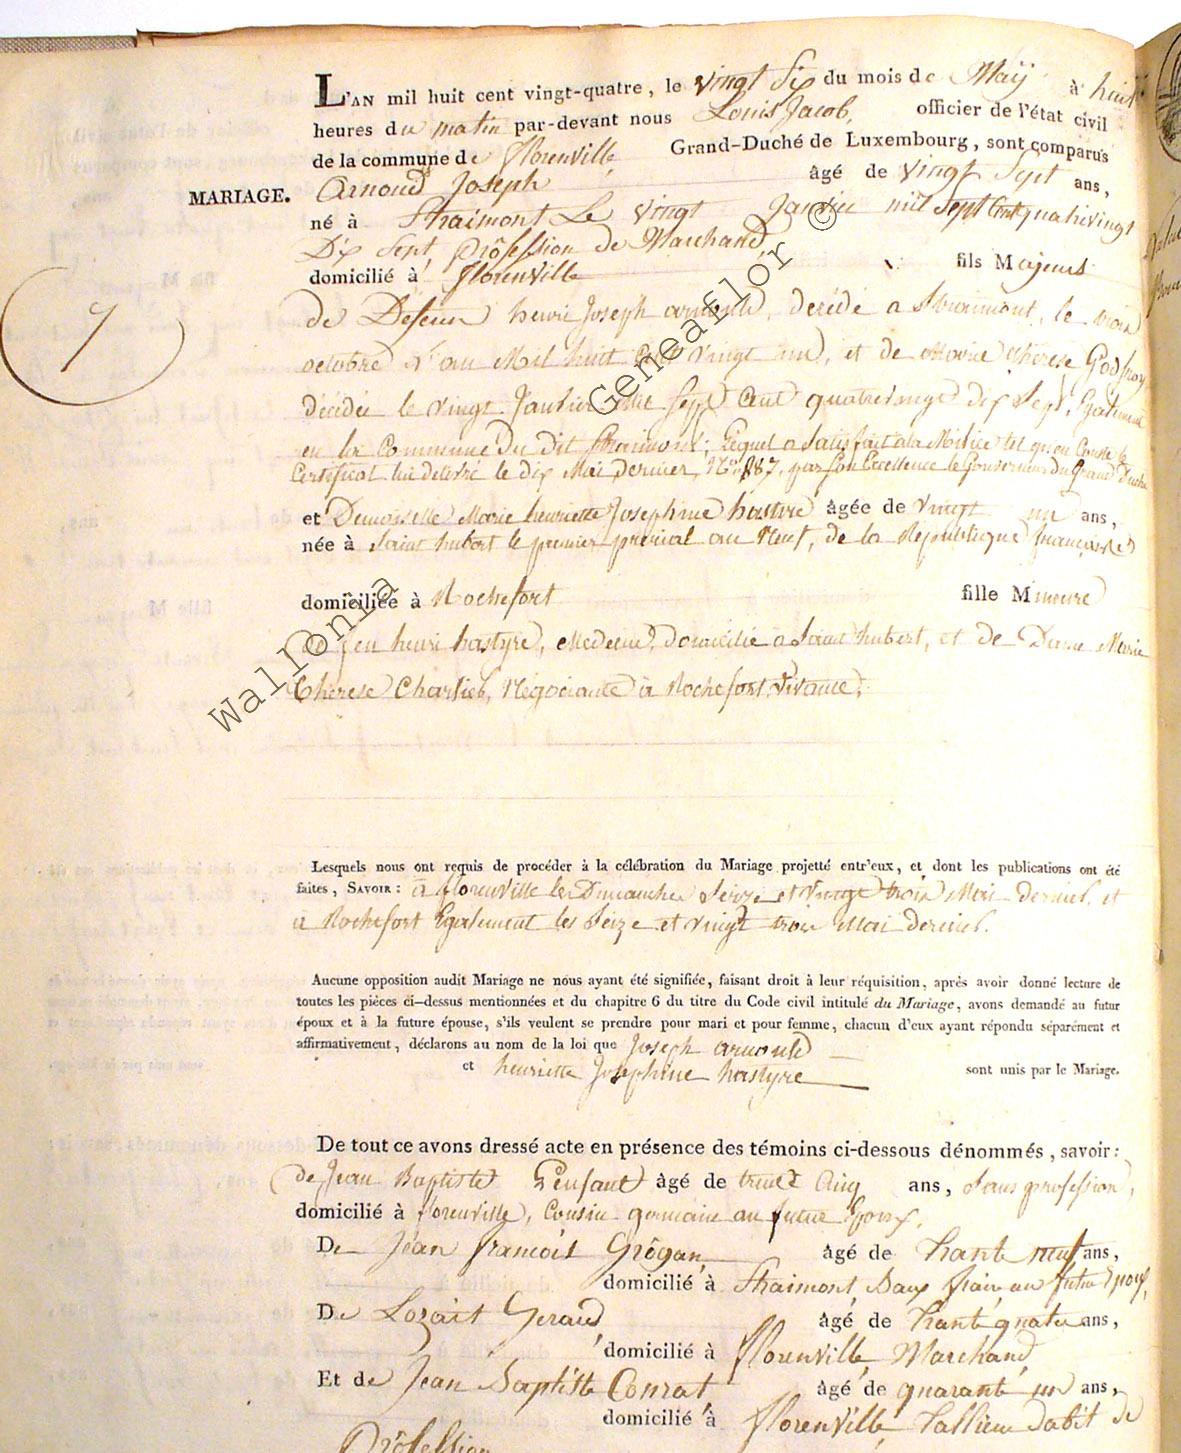 L'AN mil huit cent vingt-quatre, le vingt Six du mois de Maÿ à huit
heures du matin par-devant nous Louis Jacob, officier de l'état civil
de la commune de florenville Grand-Duché de Luxembourg, sont comparus
MARIAGE.
Arnould Joseph âgé de vingt Sept ans,
né à Straimont Le vingt Janvier mil Sept Cent quatrevingt
Dix Sept, Prôfession de Marchand
domicilié à florenville fils Majeur
7
de Defeun henri Joseph arnould, décédé a Straimont, le trois
octobre l'an Mil huit Cent vingt un, et de Marie thérese Godfroy
décédée le vingt Janvier Mil Sept Cent quatrevingt dix Sept, Egalement
en la Commune du dit Straimont; Lequel a Satisfait a la Milice tel qu'en Conste le
Certificat lui délivré le dix Mai dernier, N.º 187, par Son Excellence le Gouverneur du Grand Duché
et Demoiselle Marie henriette Josephine hastire âgée de vingt un ans,
née à Saint hubert le premier prérial an Neuf, de la République française
domiciliée à Rochefort fille Mineure
de feu henri hastyre, Médecin, domicilié a Saint hubert, et de Dame Marie
thérese Charlier, Négociante à Rochefort, vivante,
Lesquels nous ont requis de procéder à la célébration du Mariage projetté entr'eux, et dont les publications ont été
faites, SAVOIR: à florenville les Dimanches Seize et vingt trois Mai dernier, et
à Rochefort Egalement les Seize et vingt trois Mai dernier.
Aucune opposition audit Mariage ne nous ayant été signifiée, faisant droit à leur réquisition, après avoir donné lecture de
toutes les piéces ci-dessus mentionnées et du chapitre 6 du titre du Code civil intitulé du Mariage, avons demandé au futur
époux et à la future épouse, s'ils veulent se prendre pour mari et pour femme, chacun d'eux ayant répondu séparément et
affirmativement, déclarons au nom de la loi que Joseph arnould
et henriette Josephine hastyre sont unis par le Mariage.
De tout ce avons dressé acte en présence des témoins ci-dessous dénommés, savoir:
de Jean Baptiste Lenfant âgé de trente Cinq ans, Sans profession,
domicilié à florenville, Cousin germain au futur Epoux,
De Jean francois Grôgan, âgé de trante neuf ans,
domicilié à Straimont, Baux frair au futur Epoux,
De Lozait Geraud, âgé de trante quatre ans,
domicilié à florenville, Marchand,
Et de Jean Baptiste Conrat âgé de quarante un ans,
domicilié à florenville, tallieur dabit de
Prôfession
Wallonia Geneaflor ©